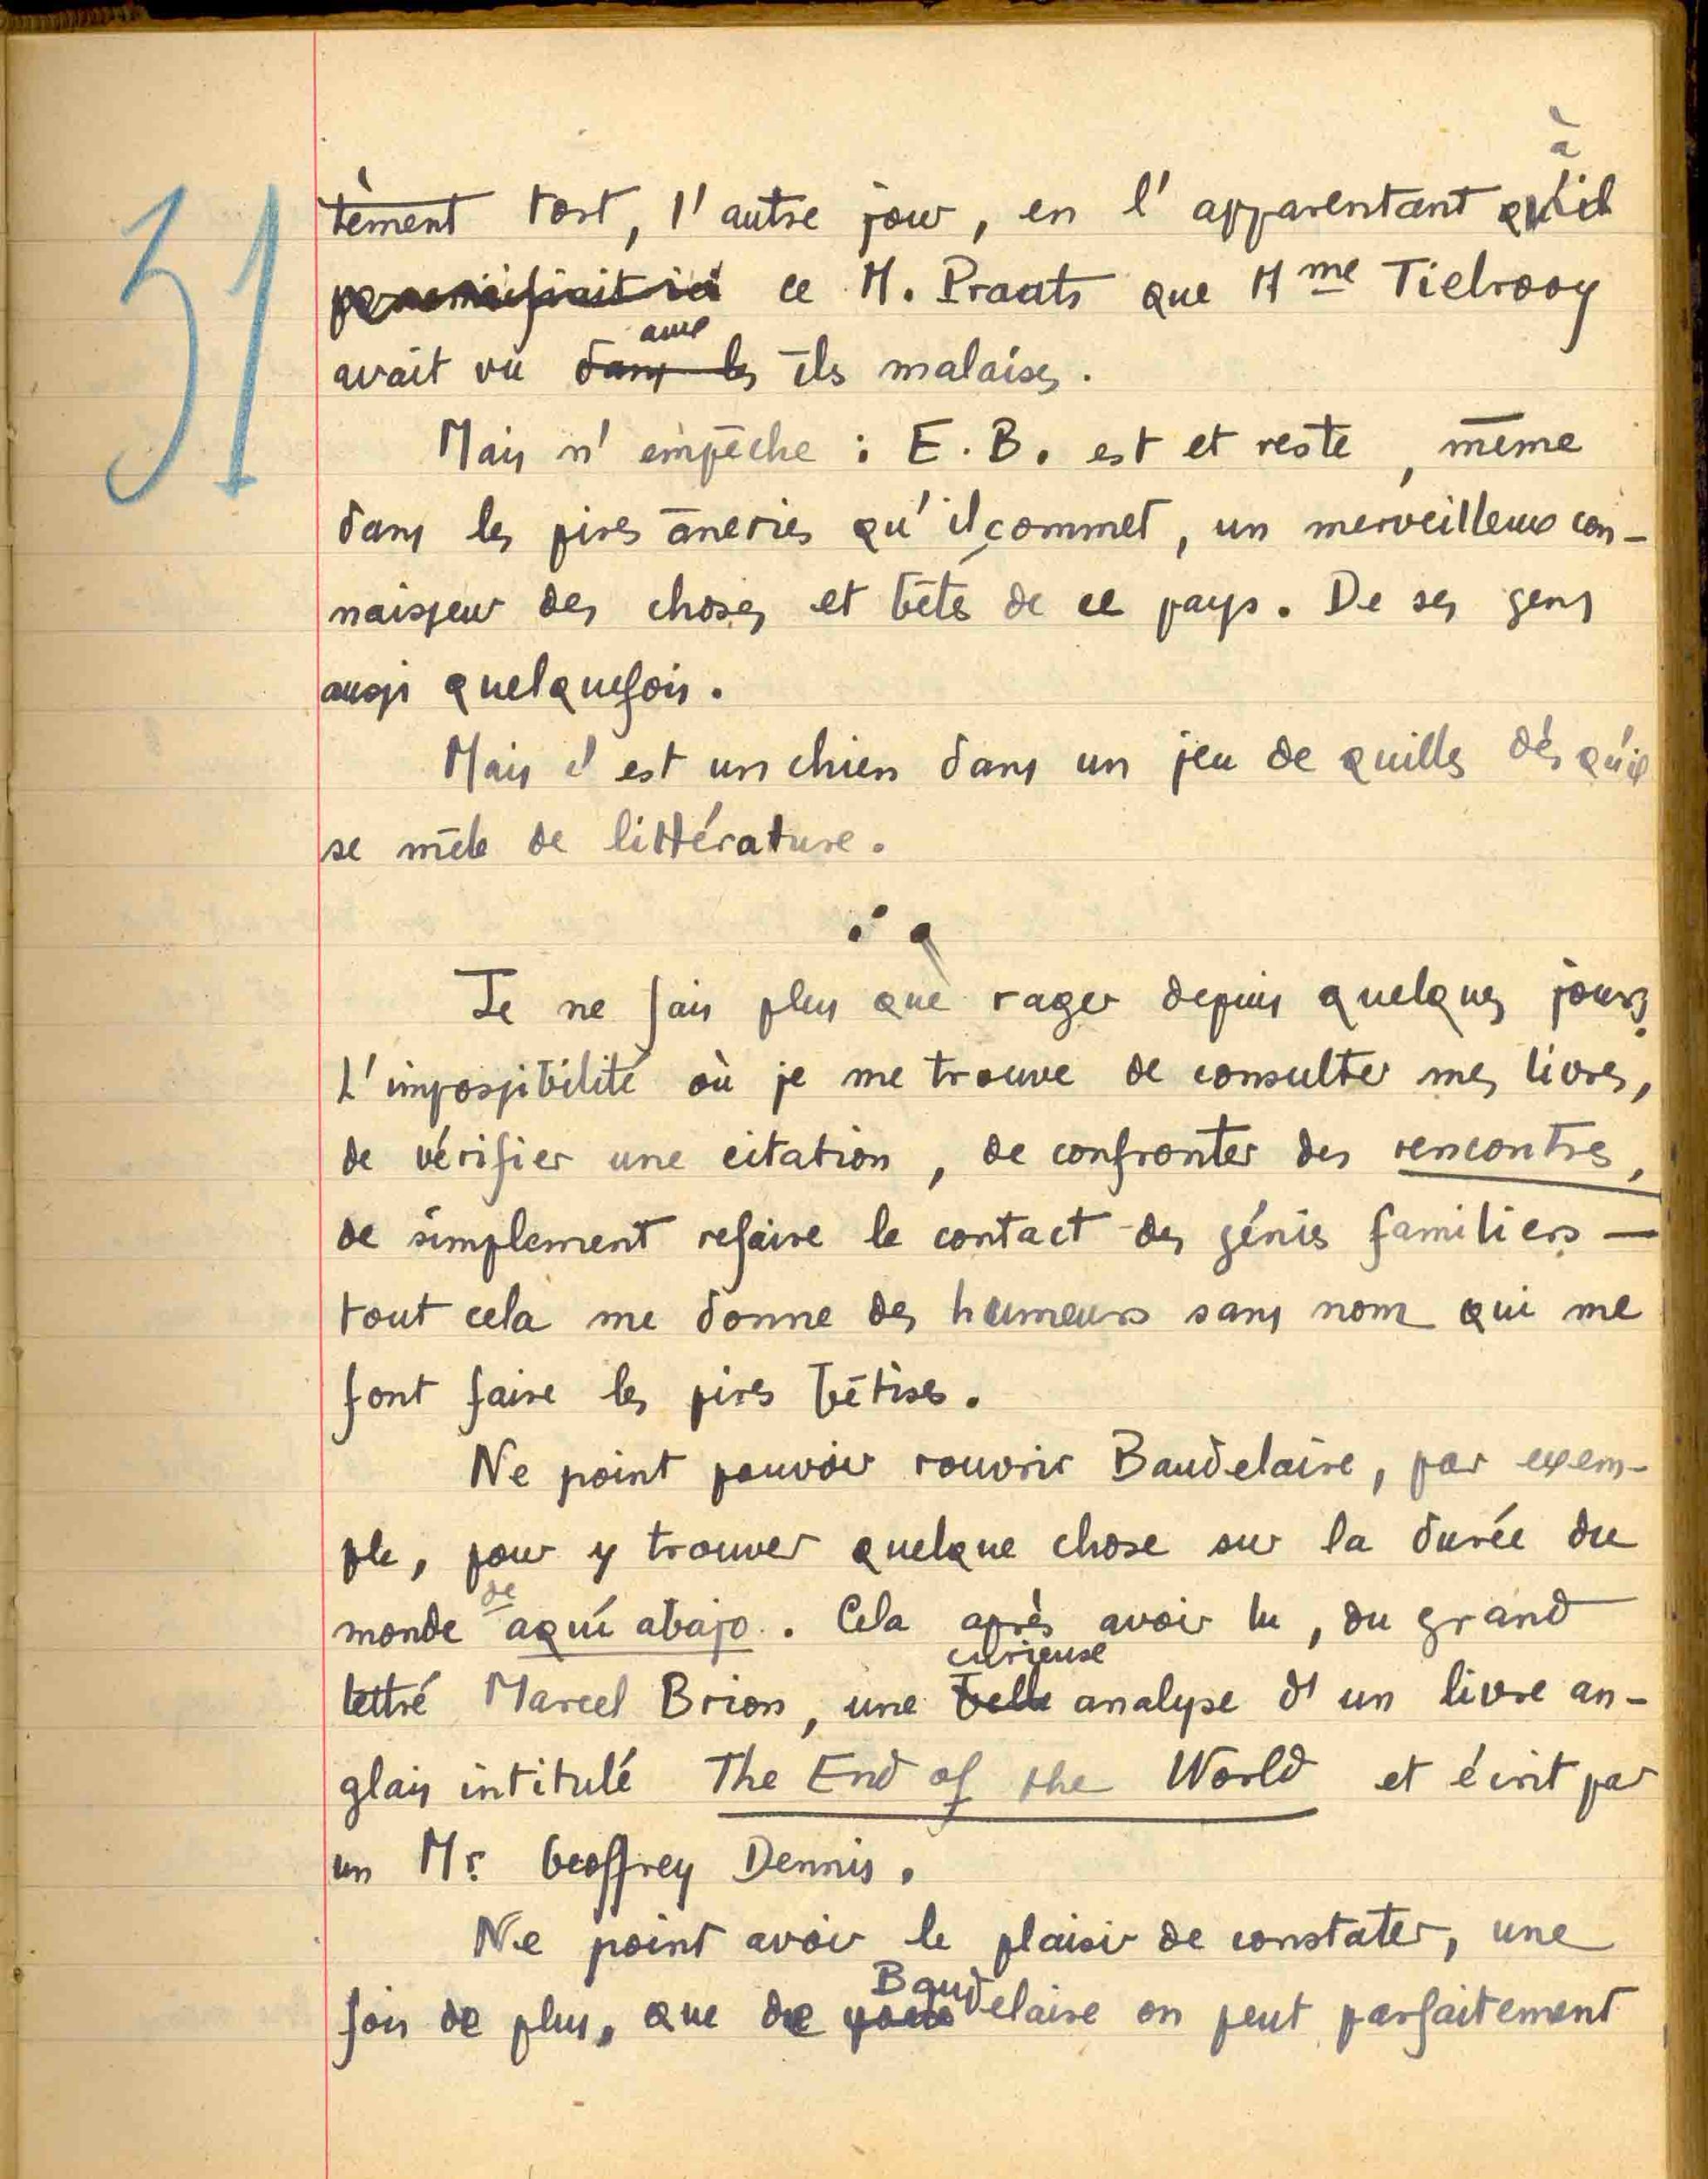 31
tèment tort, l'autre jour, en l'apparentant qu'il à
personnifiait ici ce M. Praats que Mme Tielrooy
avait vu dans les aux îles malaises.
Mais n'empêche : E. B. est et reste, même
dans les pires âneries qu'il commet, un merveilleux con-
naisseur des choses et bêtes de ce pays. De ses gens
aussi quelquefois.
Mais il est un chien dans un jeu de quilles dès qu'il
se mêle de littérature.
Je ne fais plus que rager depuis quelques jours.
L'impossibilité où je me trouve de consulter mes livres,
de vérifier une citation, de confronter des rencontres,
de simplement refaire le contact des génies familiers —
tout cela me donne des humeurs sans nom qui me
font faire les pires bêtises.
Ne point pouvoir rouvrir Baudelaire, par exem-
ple, pour y trouver quelque chose sur la durée du
monde de aquí abajo. Cela après avoir lu, du grand
lettré Marcel Brion, une belle curieuse analyse d'un livre an-
glais intitulé The End of the World et écrit par
un Mr. Geoffrey Dennis.
Ne point avoir le plaisir de constater, une
fois de plus, que de Baudelaire on peut parfaitement